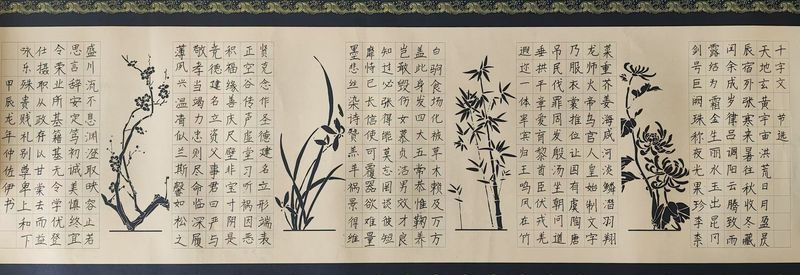 千字文 节选
天地玄黄宇宙洪荒日月盈昃
辰宿列张寒来暑往秋收冬藏
闰余成岁律吕调阳云腾致雨
露结为霜金生丽水玉出昆冈
剑号巨阙珠称夜光果珍李柰
菜重芥姜海咸河淡鳞潜羽翔
龙师火帝鸟官人皇始制文字
乃服衣裳推位让国有虞陶唐
吊民伐罪周发殷汤坐朝问道
垂拱平章爱育黎首臣伏戎羌
遐迩一体率宾归王鸣凤在竹
白驹食场化被草木赖及万方
盖此身发四大五常恭惟鞠养
岂敢毁伤女慕贞洁男效才良
知过必改得能莫忘罔谈彼短
靡恃己长信使可覆器欲难量
墨悲丝染诗赞羔羊景维
贤克念作圣德建名立形端表
正空谷传声虚堂习听祸因恶
积福缘善庆尺璧非宝寸阴是
竞德建名立资父事君曰严与
敬孝当竭力忠则尽命临深履
薄夙兴温凊似兰斯馨如松之
盛川流不息渊澄取映容止若
思言辞安定笃初诚美慎终宜
令荣业所基籍甚无竟学优登
仕摄职从政存以甘棠去而益
咏乐殊贵贱礼别尊卑上和下
甲辰龙年仲佐伊书